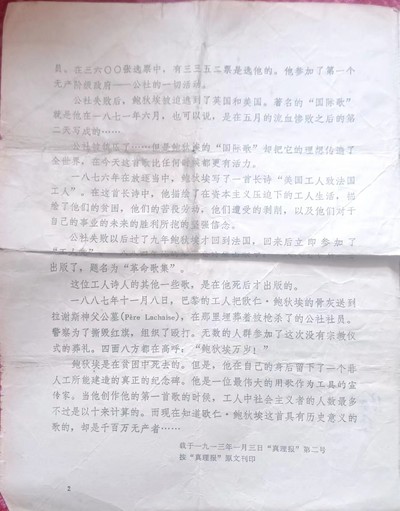 员，在三六〇〇张选票中，有三三五二票是选他的。他参加了第一个
无产阶级政府——公社的一切活动。
公社失败后，鲍狄埃被迫逃到了英国和美国。著名的“国际歌”
就是他在一八七一年六月，也可以说，是在五月的流血惨败之后的第
二天写成的……
公社被镇压了……但是鲍狄埃的“国际歌”却把它的理想传遍了
全世界，在今天这首歌比任何时候都更有活力。
一八七六年在放逐当中，鲍狄埃写了一首长诗“美国工人致法国
工人”。在这首长诗中，他描绘了在资本主义压迫下的工人生活，描
绘了他们的贫困，他们的苦役劳动，他们遭受的剥削，以及他们对于
自己的事业的未来的胜利所抱的坚强信念。
公社失败以后过了九年鲍狄埃才回到法国，回来后立即参加了
“工人党”
出版了，题名为“革命歌集”。
这位工人诗人的其他一些歌，是在他死后才出版的。
一八八七年十一月八日，巴黎的工人把欧仁·鲍狄埃的骨灰送到
拉谢斯神父公墓(Père Lachaise)，在那里埋葬着被枪杀了的公社社员。
警察为了撕毁红旗，组织了殴打。无数的人群参加了这次没有宗教仪
式的葬礼。四面八方都在高呼：“鲍狄埃万岁！”
鲍狄埃是在贫困中死去的。但是，他在自己的身后留下了一个非
人工所能建造的真正的纪念碑。他是一位最伟大的用歌作为工具的宣
传家。当他创作他的第一首歌的时候，工人中社会主义者的人数最多
不过是以十来计算的。而现在知道欧仁·鲍狄埃这首具有历史意义的
歌的，却是千百万无产者……
载于一九一三年一月三日“真理报”第二号
按“真理报”原文刊印
2